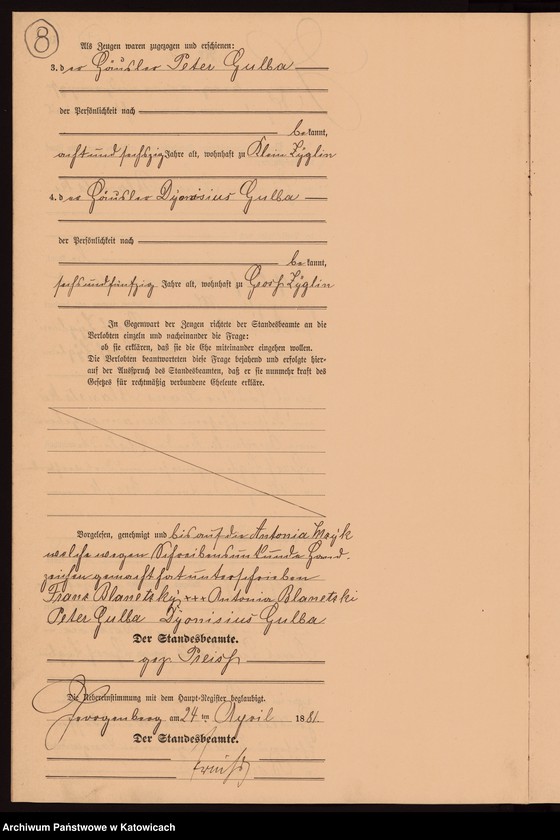 8
Als Zeugen waren zugezogen und erschienen:
3. der Häusler Peter Gulba
der Persönlichkeit nach
bekannt,
acht und sechszig Jahre alt, wohnhaft zu Klein Zyglin
4. der Häusler Dyonisius Gulba
der Persönlichkeit nach
bekannt,
sechsundfünfzig Jahre alt, wohnhaft zu Groß Zyglin
In Gegenwart der Zeugen richtete der Standesbeamte an die
Verlobten einzeln und nacheinander die Frage:
ob sie erklären, daß sie die Ehe miteinander eingehen wollen.
Die Verlobten beantworteten diese Frage bejahend und erfolgte hier-
auf der Ausspruch des Standesbeamten, daß er sie nunmehr kraft des
Gesetzes für rechtmäßig verbundene Eheleute erkläre.
Vorgelesen, genehmigt und bis auf die Antonia
welche wegen Schreibensunkunde Hand-
zeichen gemacht hat unterschrieben
Franz Blanetzky +++ Antonia Blanetski
Peter Gulba Dyonisius Gulba
Der Standesbeamte.
gez Preiß
Die Uebereinstimmung mit dem Haupt-Register beglaubigt.
Georgenberg am 24 ten April 1881.
Der Standesbeamte.
Archiwum Państwowe w Katowicach